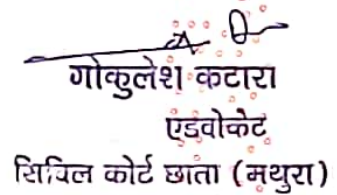 गोकुलेश कटारा
एडवोकेट
सिविल कोर्ट छाता (मथुरा)